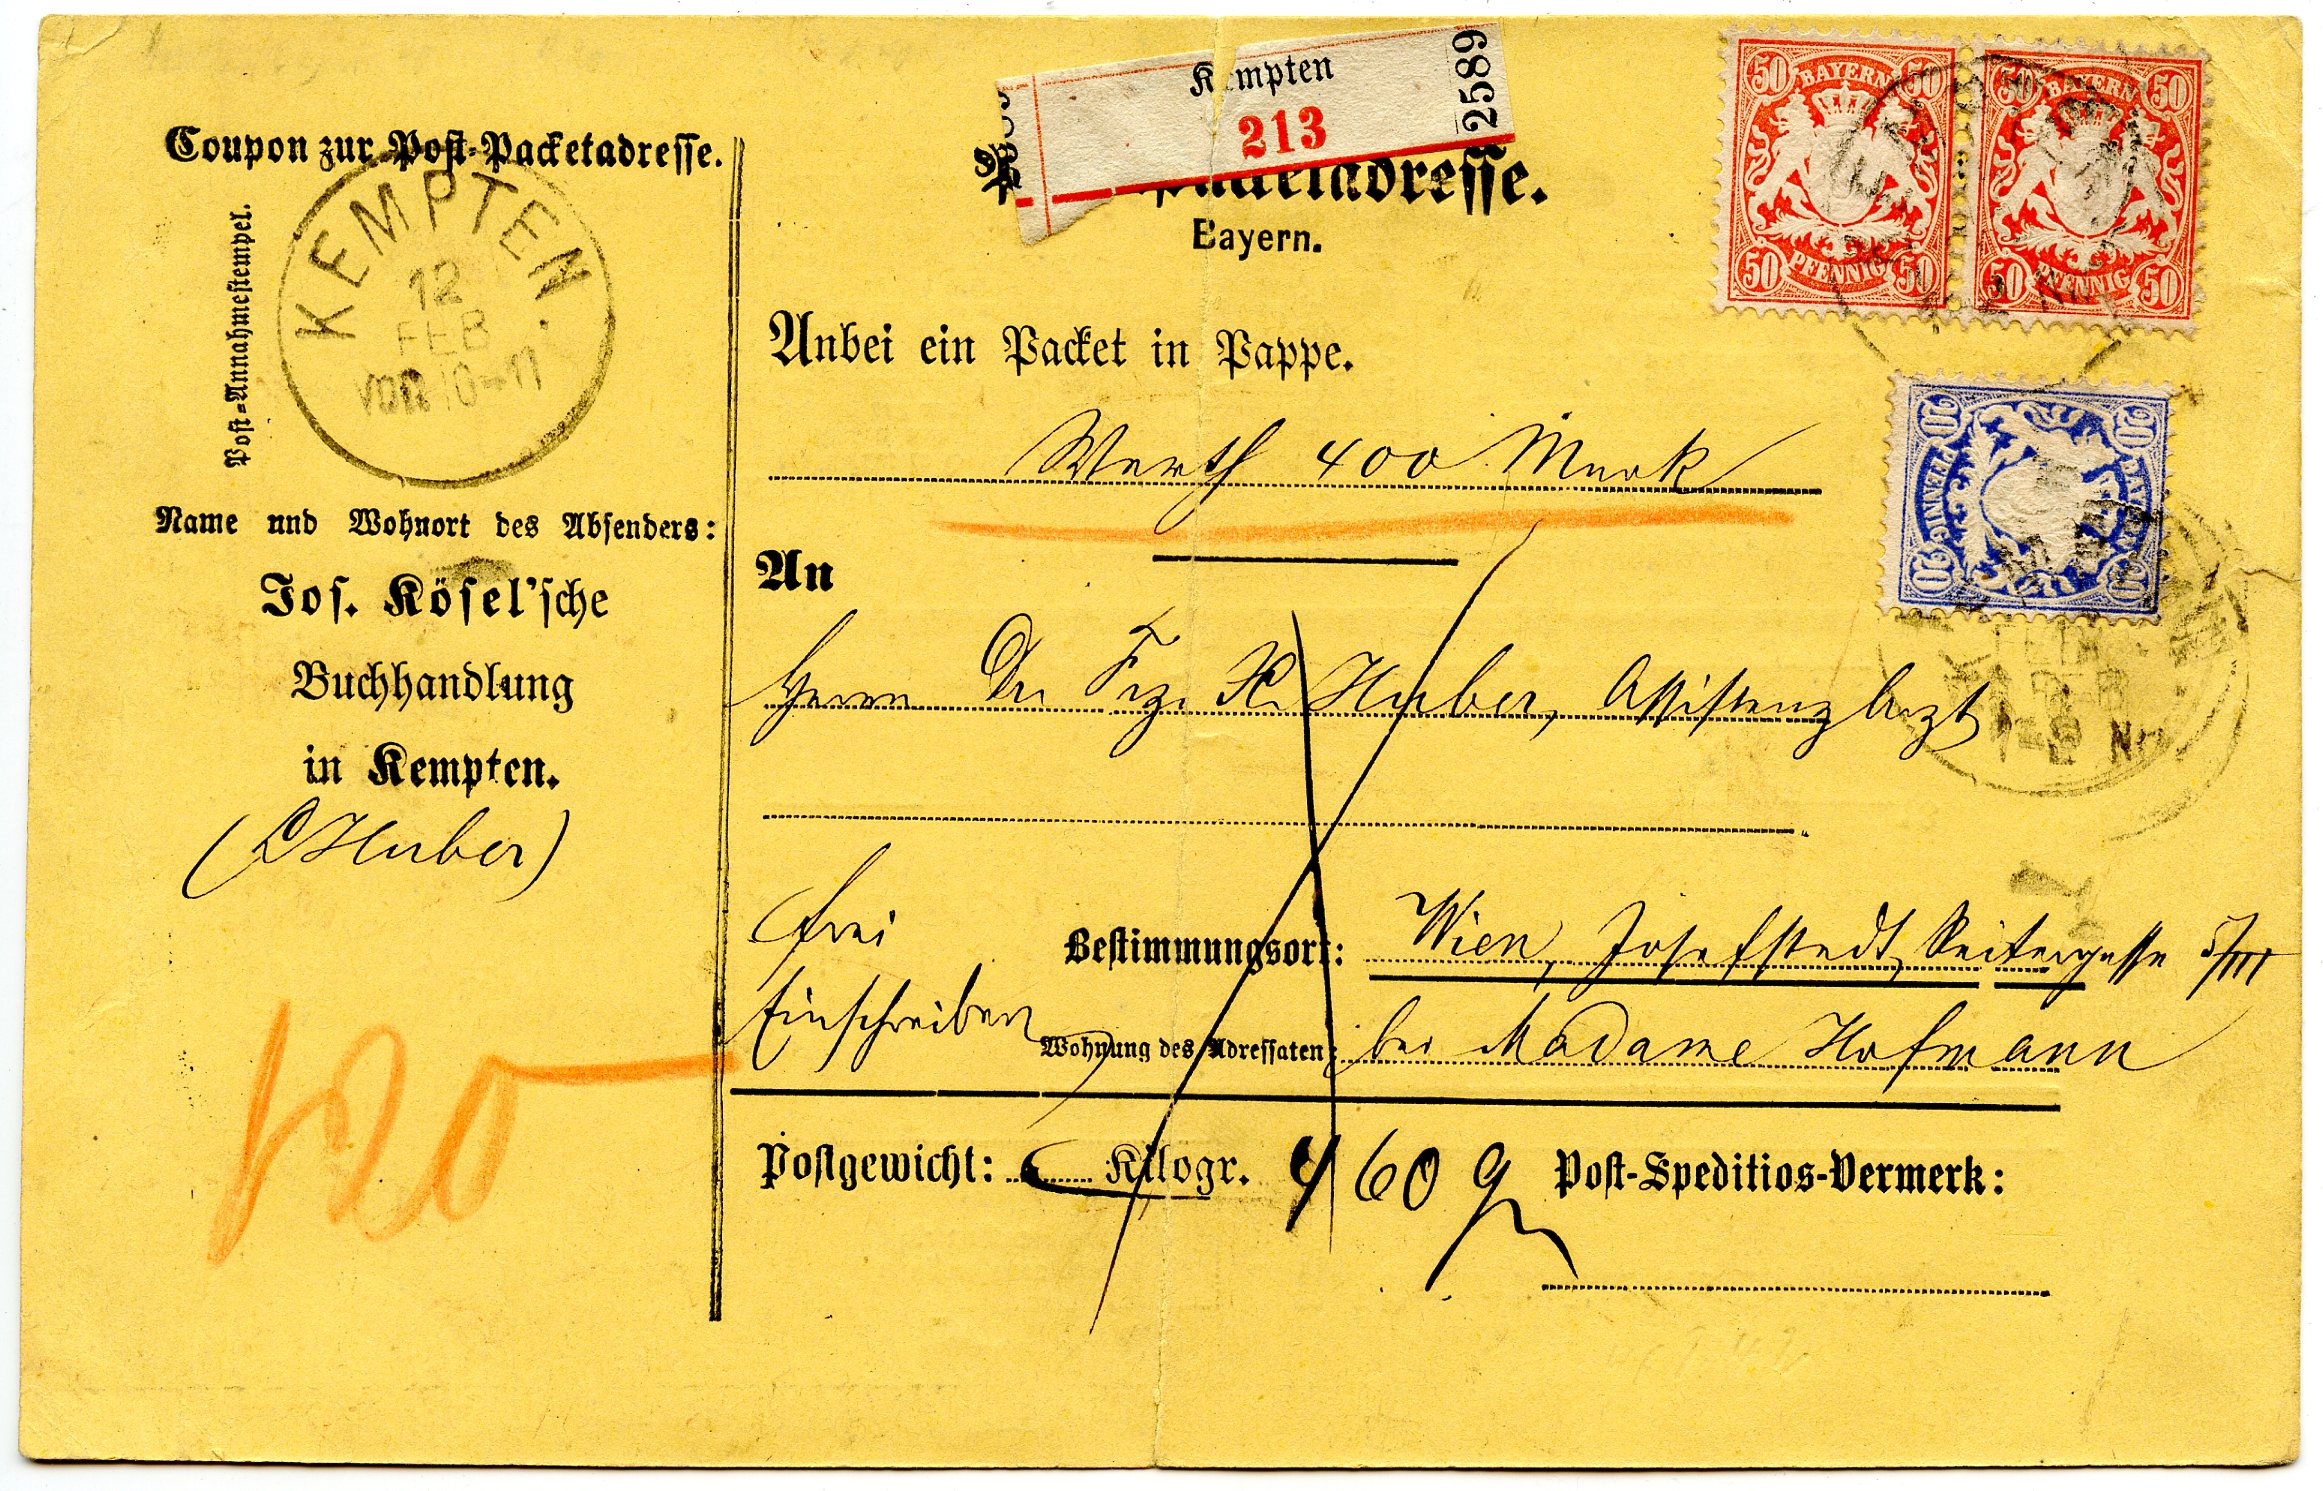 Coupon zur Post-Packetadresse.
Post-Annahmestempel.
KEMPTEN
12
FEB
VOR 10-11
Name und Wohnort des Absenders:
Jos. Kösel'sche
Buchhandlung
in Kempten.
(Huber)
120
Kempten
213
2589
Packetadresse.
Bayern.
50 BAYERN 50
50 PFENNIG 50
50 BAYERN 50
50 PFENNIG 50
20 BAYERN 20
20 PFENNIG 20
Anbei ein Packet in Pappe.
Werth 400 Mark
An
Herrn Dr Frz. X. Huber, Assistenzarzt
frei
Einschreiben
Bestimmungsort: Wien, Josefstadt, Reitergasse 5/III
Wohnung des Adressaten: bei Madame Hofmann
Postgewicht: Kilogr. 460 g
Post-Speditios-Vermerk: